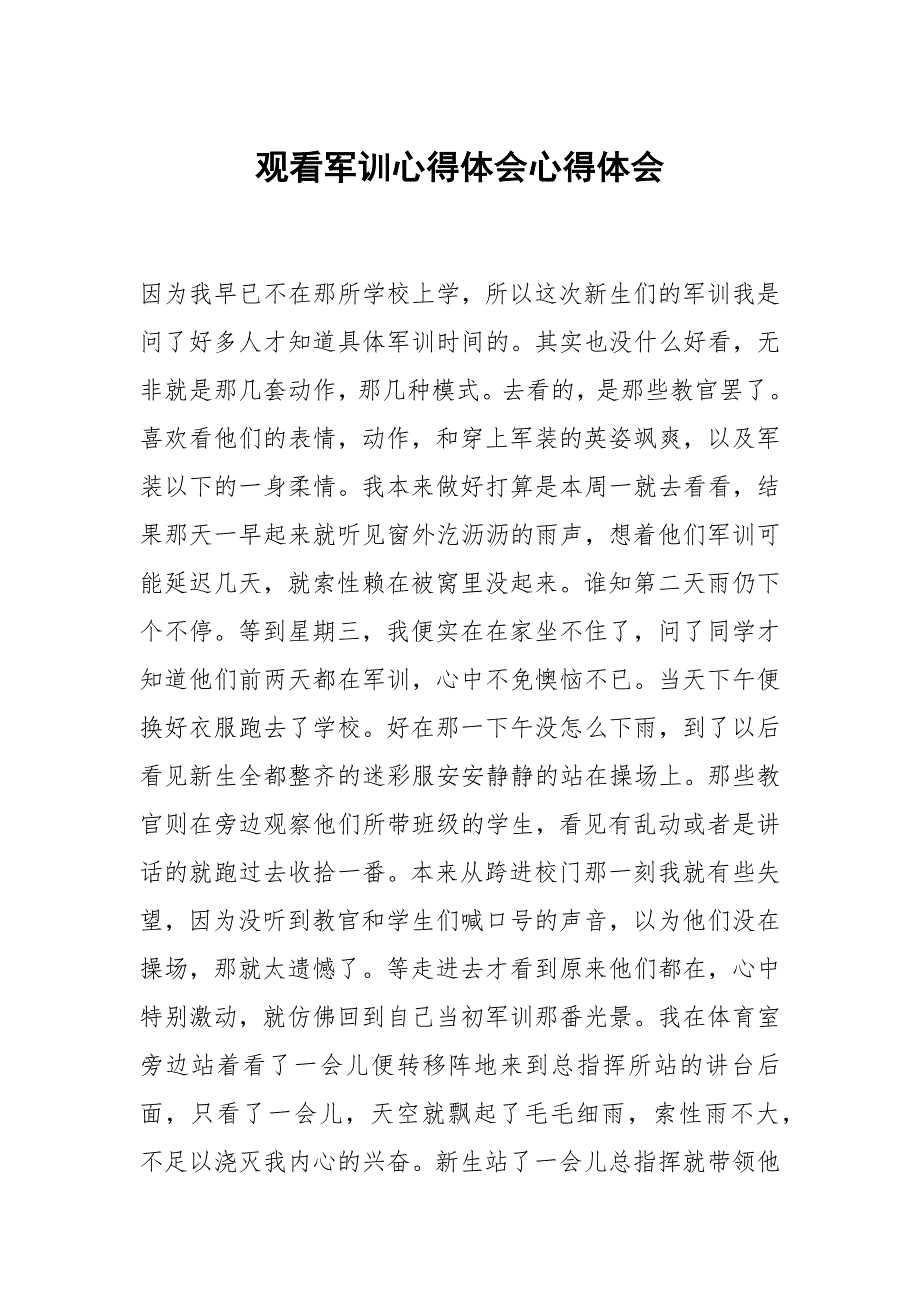 观看军训心得体会心得体会
因为我早已不在那所学校上学，所以这次新生们的军训我是
问了好多人才知道具体军训时间的。其实也没什么好看，无
非就是那几套动作，那几种模式。去看的，是那些教官罢了。
喜欢看他们的表情，动作，和穿上军装的英姿飒爽，以及军
装以下的一身柔情。我本来做好打算是本周一就去看看，结
果那天一早起来就听见窗外汔沥沥的雨声，想着他们军训可
能延迟几天，就索性赖在被窝里没起来。谁知第二天雨仍下
个不停。等到星期三，我便实在在家坐不住了，问了同学才
知道他们前两天都在军训，心中不免懊恼不已。当天下午便
换好衣服跑去了学校。好在那一下午没怎么下雨，到了以后
看见新生全都整齐的迷彩服安安静静的站在操场上。那些教
官则在旁边观察他们所带班级的学生，看见有乱动或者是讲
话的就跑过去收拾一番。本来从跨进校门那一刻我就有些失
望，因为没听到教官和学生们喊口号的声音，以为他们没在
操场，那就太遗憾了。等走进去才看到原来他们都在，心中
特别激动，就仿佛回到自己当初军训那番光景。我在体育室
旁边站着看了一会儿便转移阵地来到总指挥所站的讲台后
面，只看了一会儿，天空就飘起了毛毛细雨，索性雨不大，
不足以浇灭我内心的兴奋。新生站了一会儿总指挥就带领他